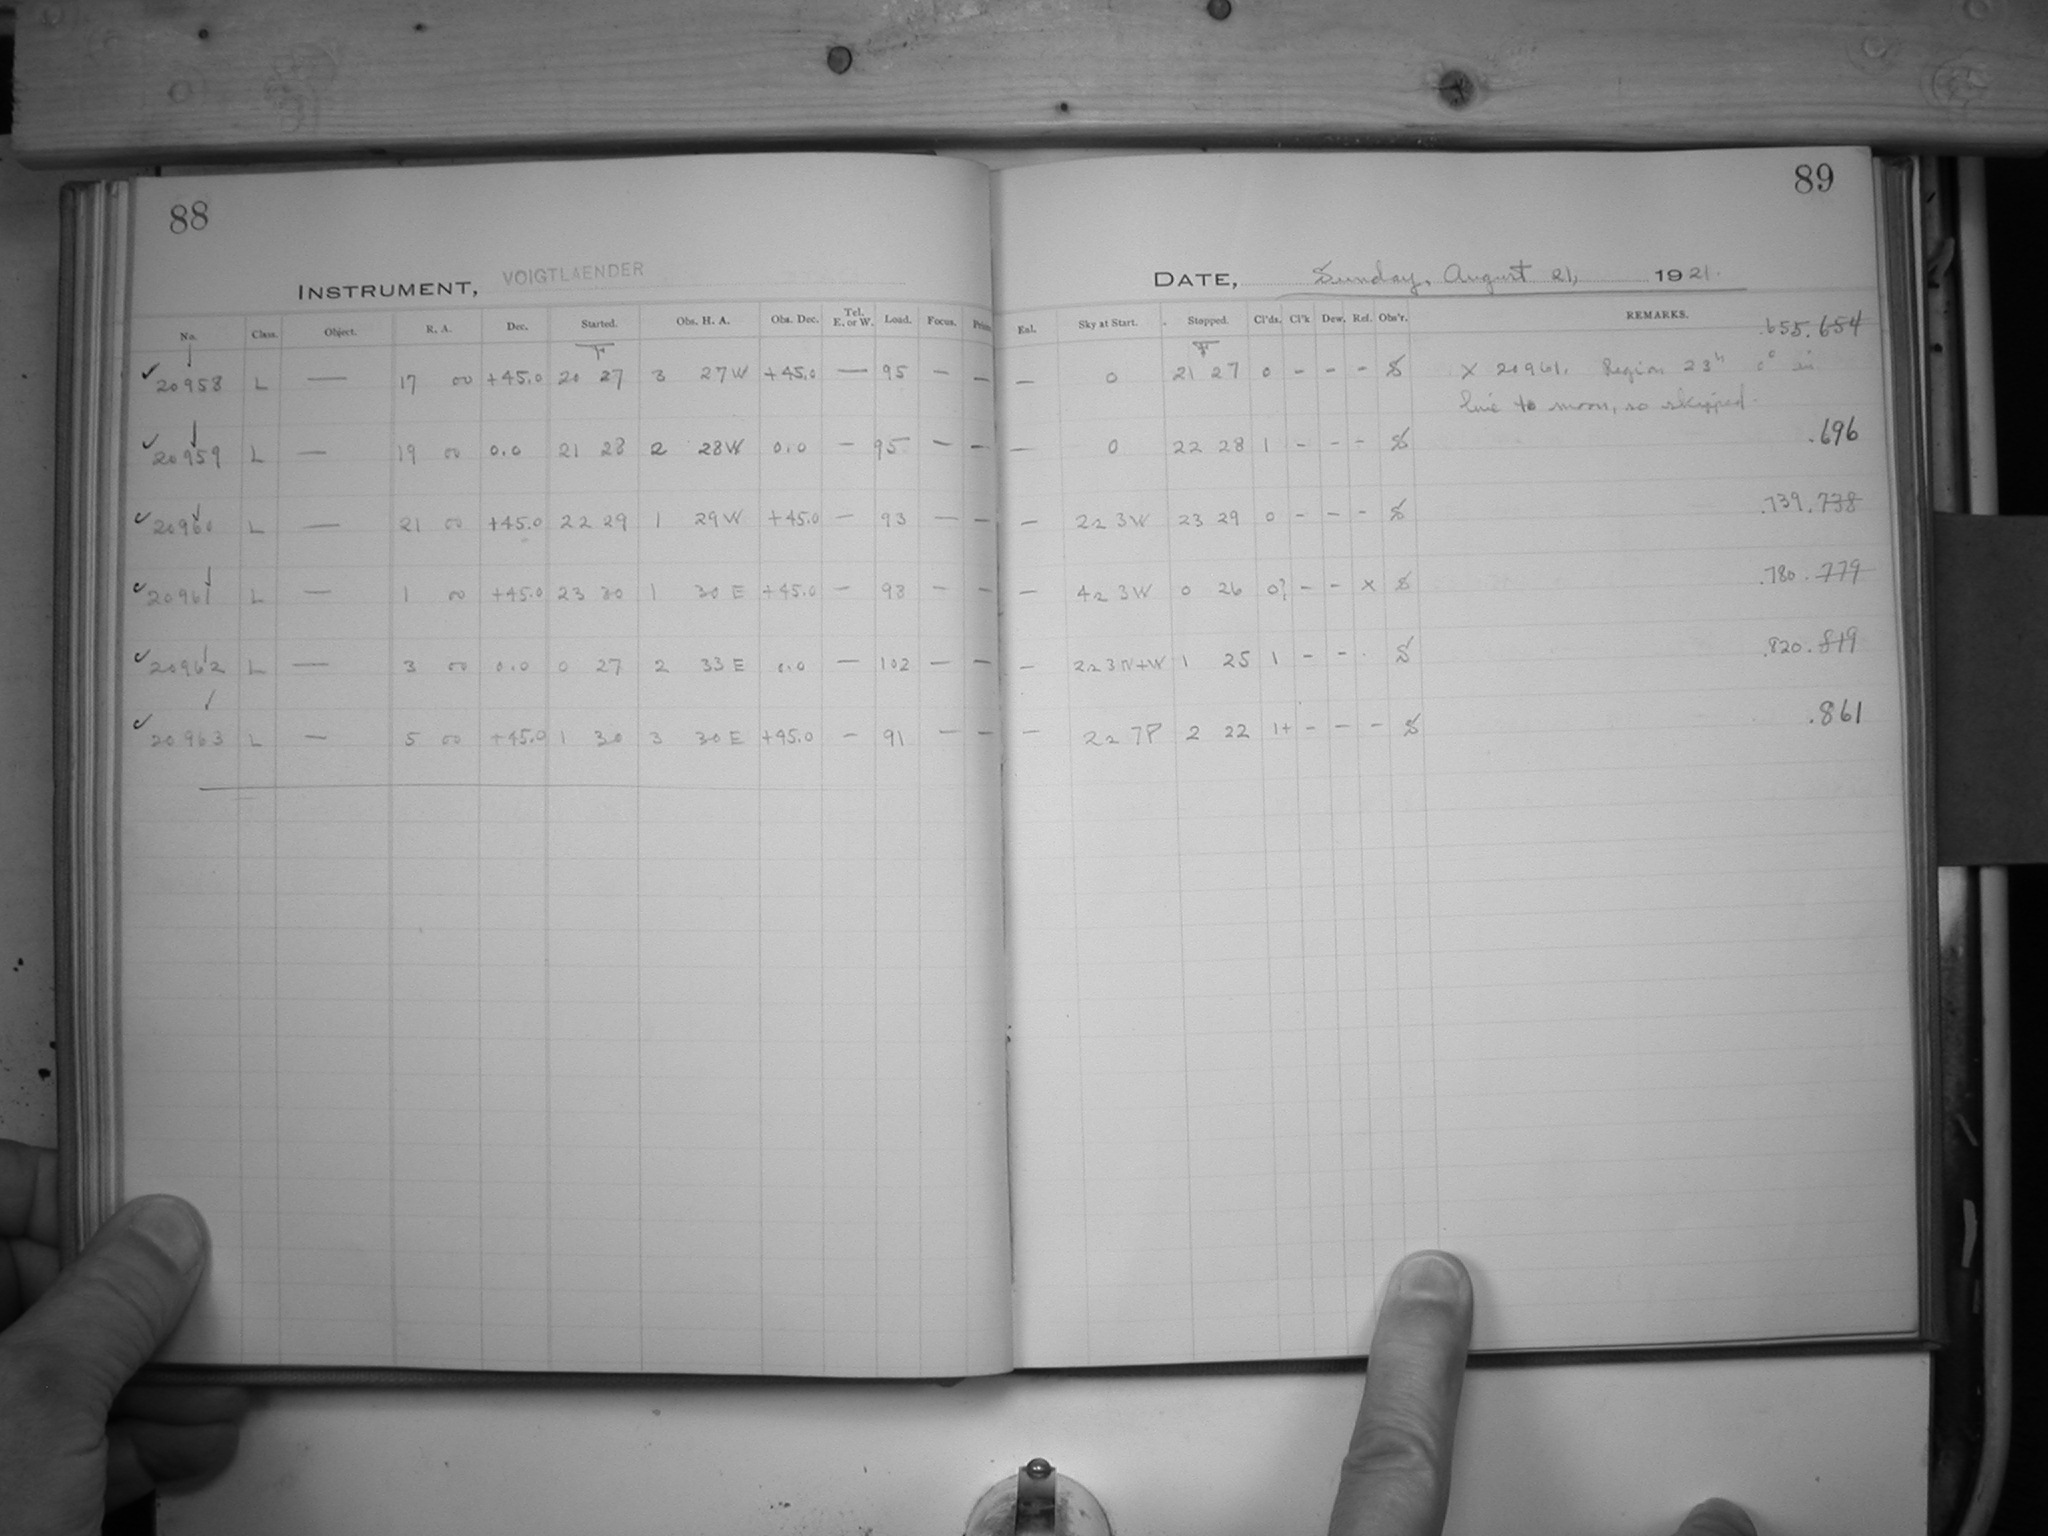 88
89
INSTRUMENT, VOIGTLAENDER
DATE, Sunday, August 21, 1921.
No. Class. Object. R. A. Dec. Started. Obs. H. A. Obs. Dec. Tel. E. or W. Load. Focus. Prism Eal. Sky at Start. Stopped. Cl'ds. Cl'k Dew. Ref. Obs'r. REMARKS.
.655 .654
20958 L — 17 00 +45.0 20 27 3 27W +45.0 — 95 — — — 0 21 27 0 - - - S X 20961. Region 23h 0° in
line to moon, so skipped.
20959 L — 19 00 0.0 21 28 2 28W 0.0 — 95 — — — 0 22 28 1 - - - S .696
20960 L — 21 00 +45.0 22 29 1 29W +45.0 — 93 — — — 2a 3W 23 29 0 - - - S .739 .738
20961 L — 1 00 +45.0 23 30 1 30 E +45.0 — 98 — — — 4a 3W 0 26 0? - - X S .780 .779
20962 L — 3 00 0.0 0 27 2 33 E 0.0 — 102 — — — 2a 3N+W 1 25 1 - - . S .820 .819
20963 L — 5 00 +45.0 1 30 3 30 E +45.0 — 91 — — — 2a 7P 2 22 1+ - - - S .861